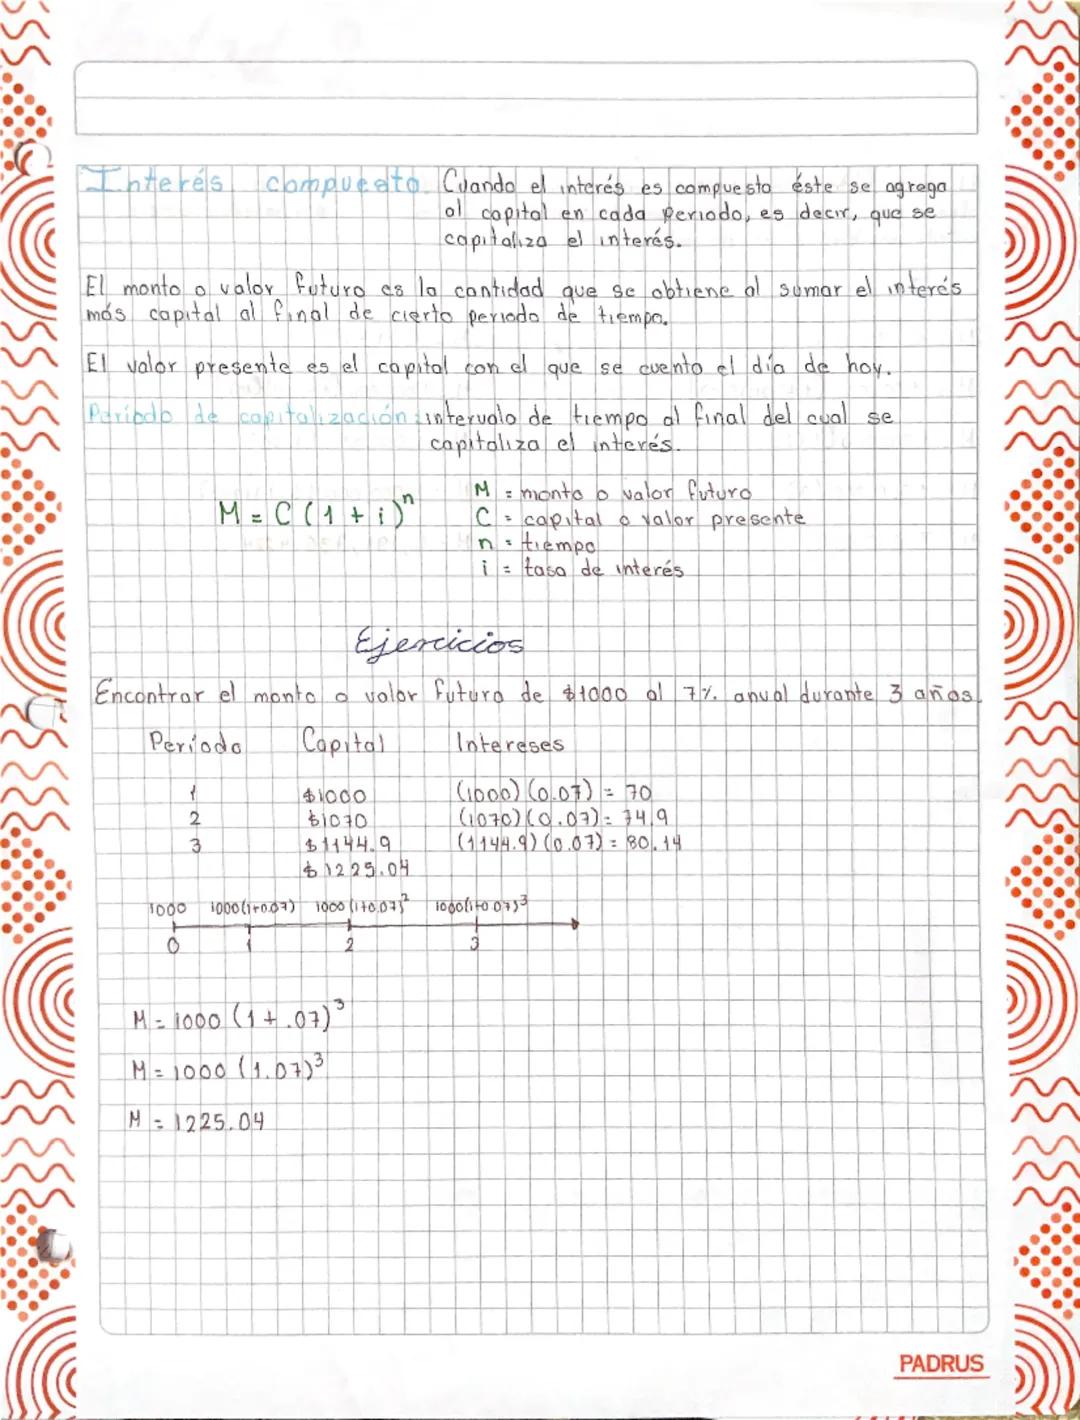 Interés compuesto Cuando el interés es compuesto éste se agrega
al capital en cada periodo, es decir, que se
capitaliza el interés.
El monto o valor futuro es la cantidad que se obtiene al sumar el interés
más capital al final de cierto periodo de tiempo.
El valor presente es el capital con el que se cuenta el día de hoy.
Periodo de capitalización: intervalo de tiempo al final del cual se
capitaliza el interés.
M = C (1 + i)^n
M = monto o valor futuro
C = capital o valor presente
n = tiempo
i = tasa de interés
Ejercicios
Encontrar el monto o valor futuro de $1000 al 7% anual durante 3 años.
Período Capital Intereses
1 $1000 (1000)(0.07) = 70
2 $1070 (1070)(0.07) = 74.9
3 $1144.9 (1144.9)(0.07) = 80.14
$1225.04
1000 1000(1+0.07) 1000(1+0.07)² 1000(1+0.07)³
0 1 2 3
M = 1000 (1 + .07)³
M = 1000 (1.07)³
M = 1225.04
PADRUS